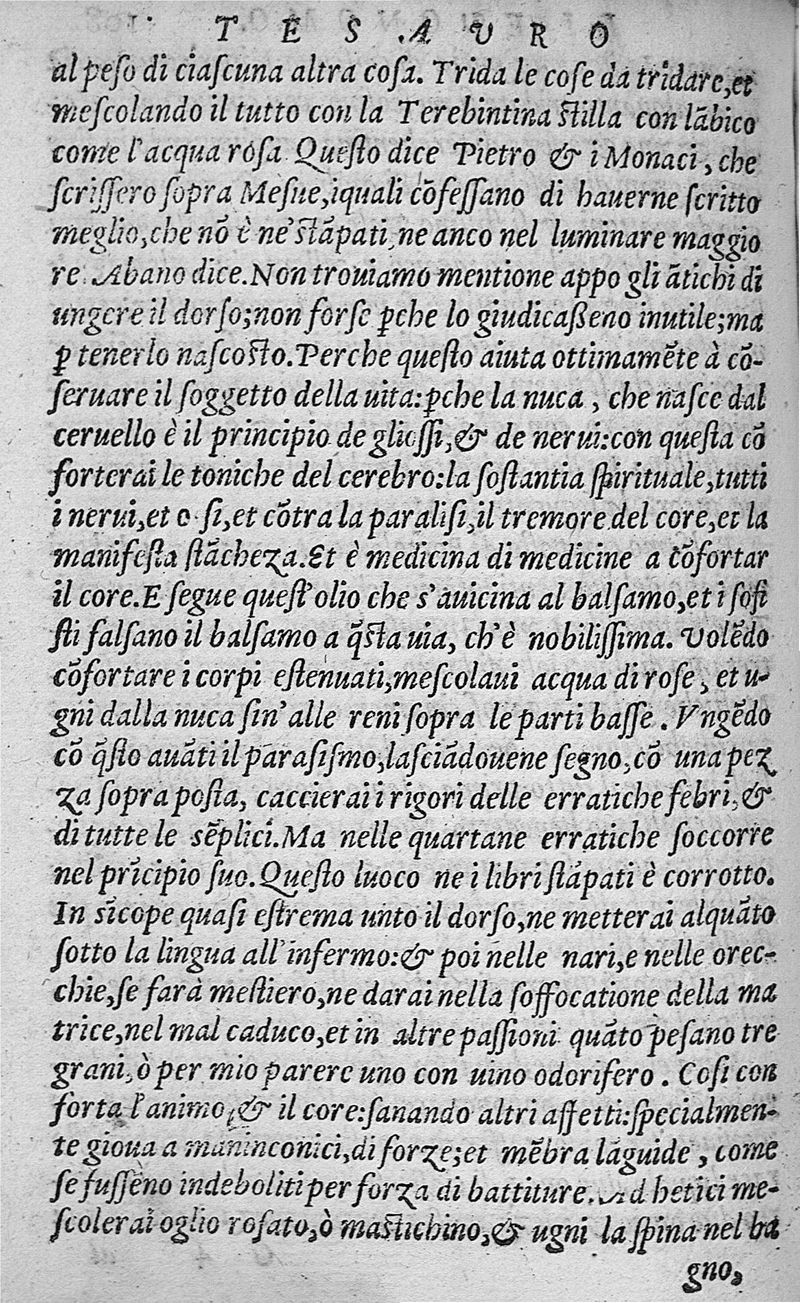 TESAURO
al peſo di ciaſcuna altra coſa. Trida le coſe da tridare, et
meſcolando il tutto con la Terebintina ſtilla con lābico
come l'acqua roſa Queſto dice Pietro & i Monaci, che
ſcriſſero ſopra Meſue, iquali cōfeſſano di hauerne ſcritto
meglio, che nō è ne' ſtāpati, ne anco nel luminare maggio
re. Abano dice. Non trouiamo mentione appo gli ātichi di
ungere il dorſo; non forſe ꝑche lo giudicaßeno inutile; ma
ꝑ tenerlo naſcoſto. Perche queſto aiuta ottimamēte à cō-
ſeruare il ſoggetto della uita: ꝑche la nuca, che naſce dal
ceruello è il principio de gli oſſi, & de nerui: con queſta cō
forterai le toniche del cerebro: la ſoſtantia ſpirituale, tutti
i nerui, et oſi, et cōtra la paraliſi, il tremore del core, et la
manifeſta ſtācheza. Et è medicina di medicine a cōfortar
il core. E ſegue queſt'olio che s'auicina al balſamo, et i ſofi
ſti falſano il balſamo a q̄ſta uia, ch'è nobiliſſima. Volēdo
cōfortare i corpi eſtenuati, meſcolaui acqua di roſe, et u-
gni dalla nuca ſin'alle reni ſopra le parti baſſe. Vngēdo
cō q̄ſto auāti il paraſiſmo, laſciādouene ſegno, cō una pez
za ſopra poſta, caccierai i rigori delle erratiche febri, &
di tutte le sēplici. Ma nelle quartane erratiche ſoccorre
nel prīcipio ſuo. Queſto luoco ne i libri ſtāpati è corrotto.
In sīcope quaſi eſtrema unto il dorſo, ne metterai alquāto
ſotto la lingua all'infermo: & poi nelle nari, e nelle orec-
chie, ſe farà meſtiero, ne darai nella ſoffocatione della ma
trice, nel mal caduco, et in altre paſſioni quāto peſano tre
grani, ò per mio parere uno con uino odorifero. Coſi con
forta l'animo, & il core: ſanando altri affetti: ſpecialmen-
te gioua a maninconici, di forze; et mēbra lāguide, come
ſe fuſſeno indeboliti per forza di battiture. Ad hetici me-
ſcolerai oglio roſato, ò maſtichino, & ugni la ſpina nel ba
gno,